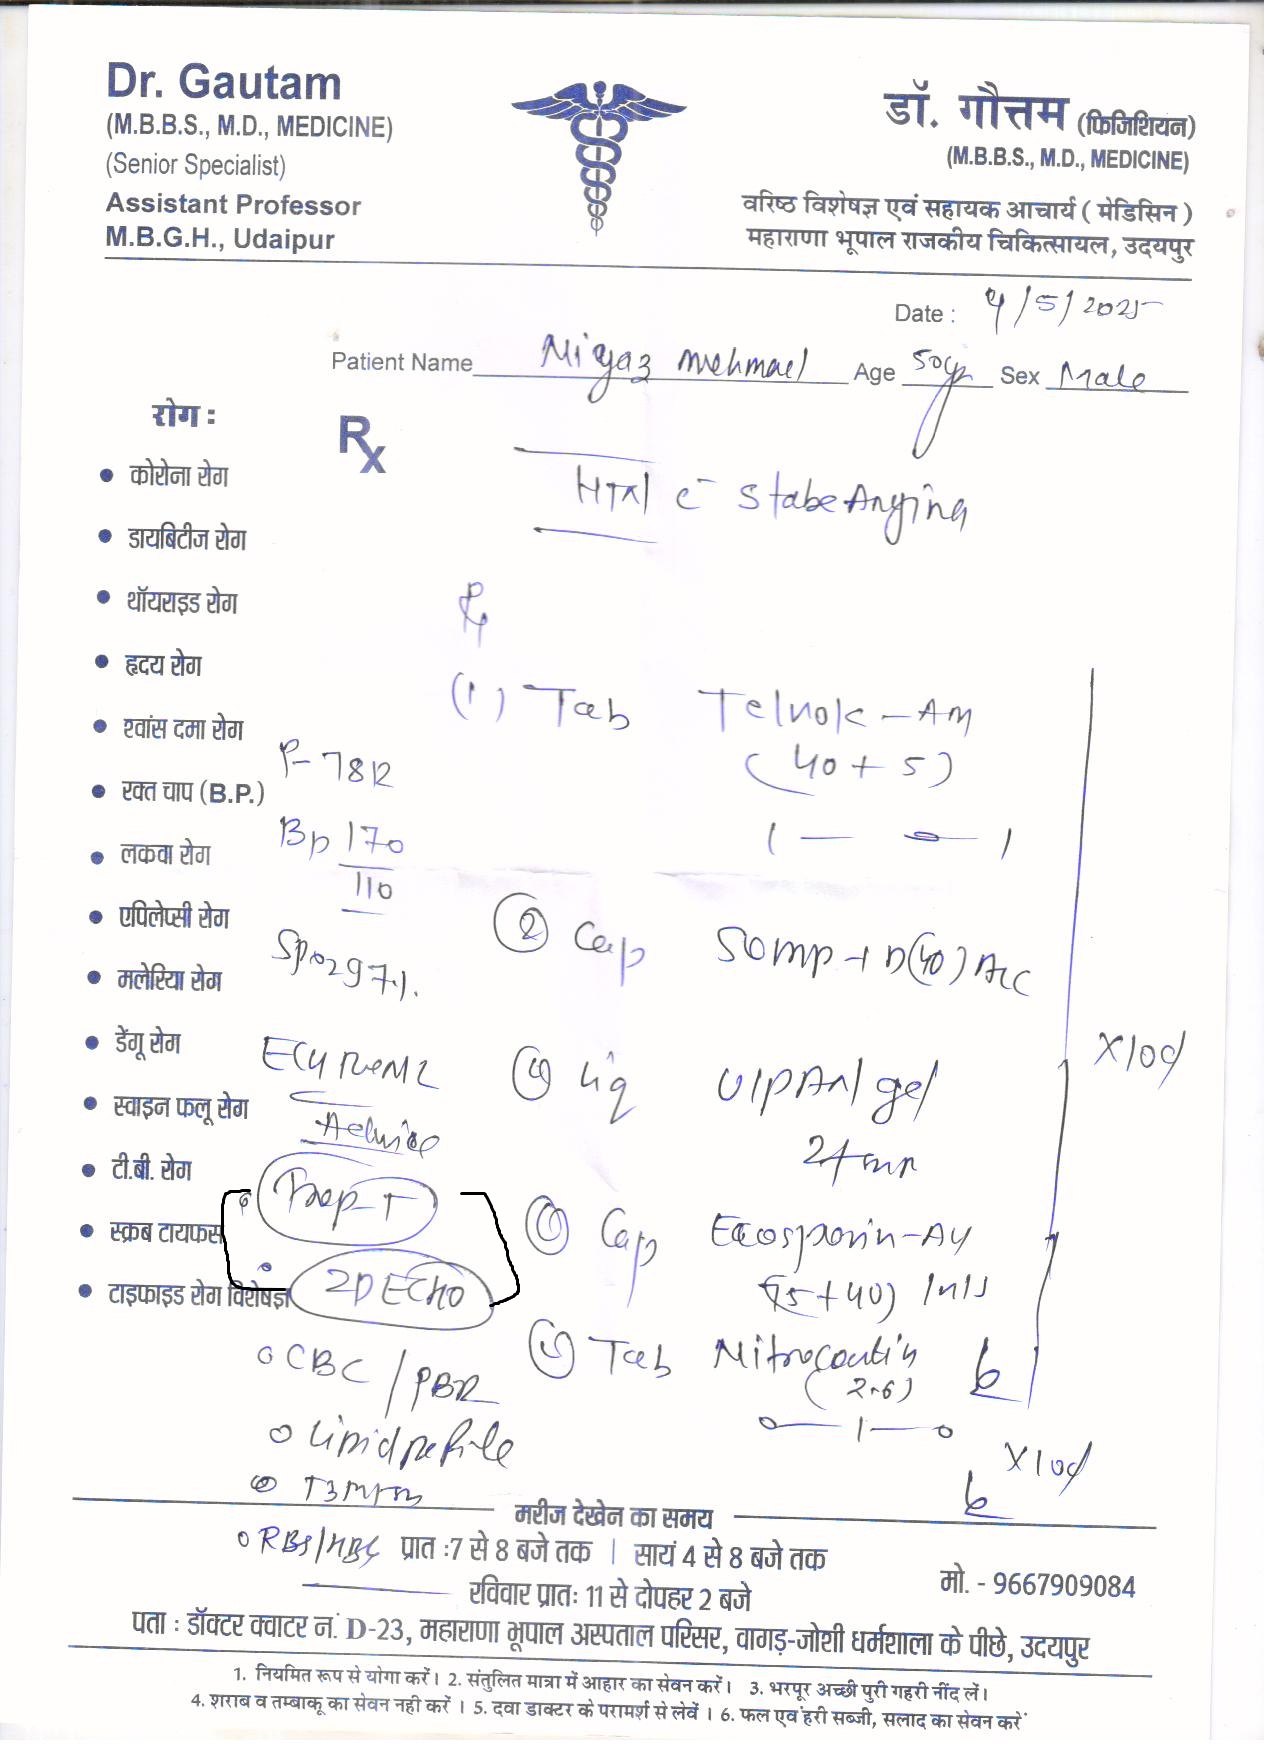 Dr. Gautam
(M.B.B.S., M.D., MEDICINE)
(Senior Specialist)
Assistant Professor
M.B.G.H., Udaipur
डॉ. गौत्तम (फिजिशियन)
(M.B.B.S., M.D., MEDICINE)
वरिष्ठ विशेषज्ञ एवं सहायक आचार्य ( मेडिसिन )
महाराणा भूपाल राजकीय चिकित्सायल, उदयपुर
Date : 4/5/2025
Patient Name Niyaz Mehmad Age 50yr Sex Male
रोग :
Rx
• कोरोना रोग
• डायबिटीज रोग
• थॉयराइड रोग
• हृदय रोग
• श्वांस दमा रोग
• रक्त चाप (B.P.)
• लकवा रोग
• एपिलेप्सी रोग
• मलेरिया रोग
• डेंगू रोग
• स्वाइन फलू रोग
• टी.बी. रोग
• स्क्रब टायफस
• टाइफाइड रोग विशेषज्ञ
HTN c Stabe Angina
(1) Tab Telnok-AM
(40+5)
1 — 1
P-78
BP 170
110
SpO2 97%
(2) Cap Somp + D(40) AC
ECG
Advice
(4) Liq gel
Trop-T
2D ECHO
Cap Ecosporin-AV
(75+40)
(5) Tab Nitrocontin
(2.6)
0—1—0
X10d
X10d
CBC /
Lipid profile
RBS/
मरीज देखेन का समय
प्रात :7 से 8 बजे तक | सायं 4 से 8 बजे तक
रविवार प्रातः 11 से दोपहर 2 बजे
मो. - 9667909084
पता : डॉक्टर क्वाटर नं. D-23, महाराणा भूपाल अस्पताल परिसर, वागड़-जोशी धर्मशाला के पीछे, उदयपुर
1. नियमित रूप से योगा करें। 2. संतुलित मात्रा में आहार का सेवन करें। 3. भरपूर अच्छी पुरी गहरी नींद लें।
4. शराब व तम्बाकू का सेवन नही करें । 5. दवा डाक्टर के परामर्श से लेवें । 6. फल एवं हरी सब्जी, सलाद का सेवन करें